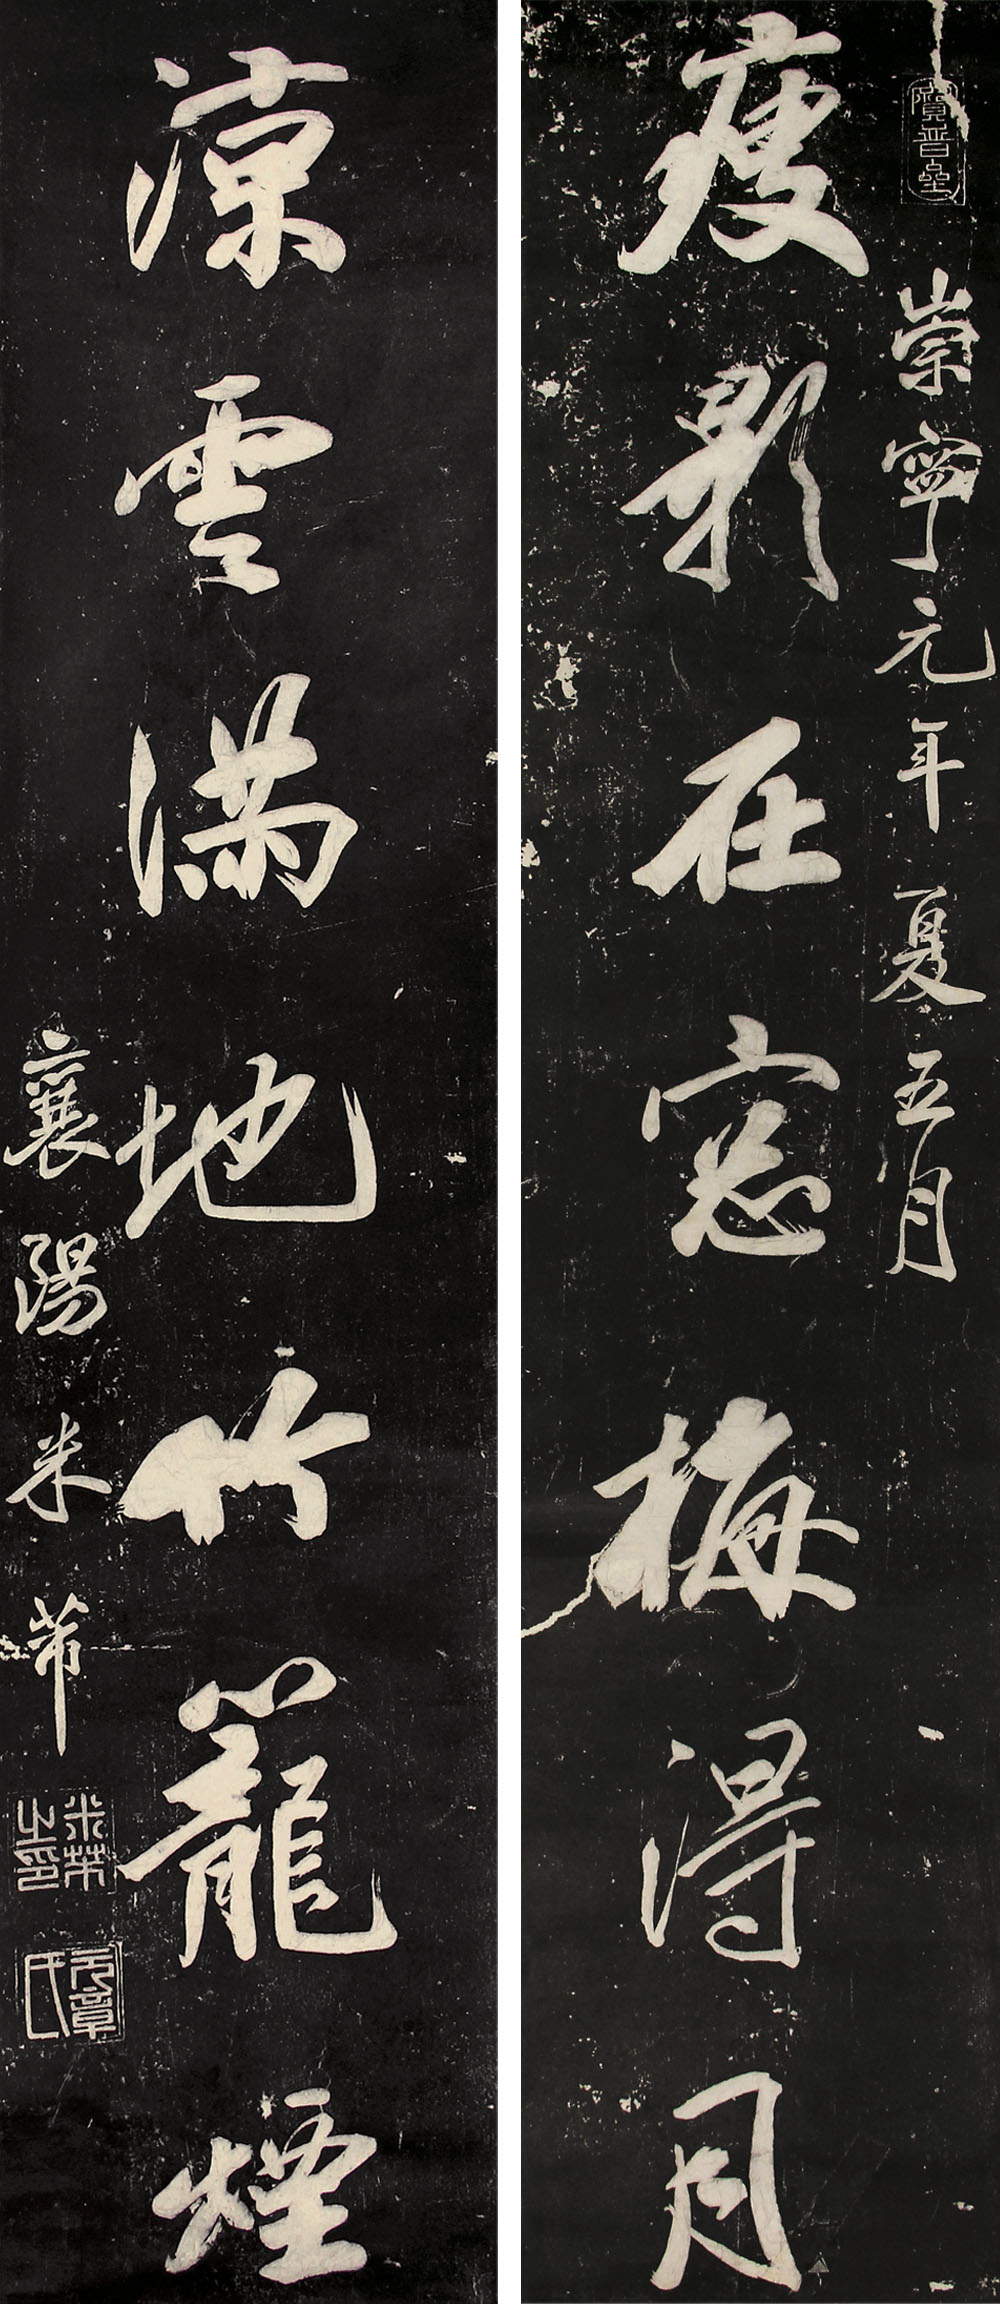 寶晉齋
崇寧元年夏五月
瘦影在窓梅得月
涼雲滿地竹籠煙
襄陽米芾
米芾之印
元章氏